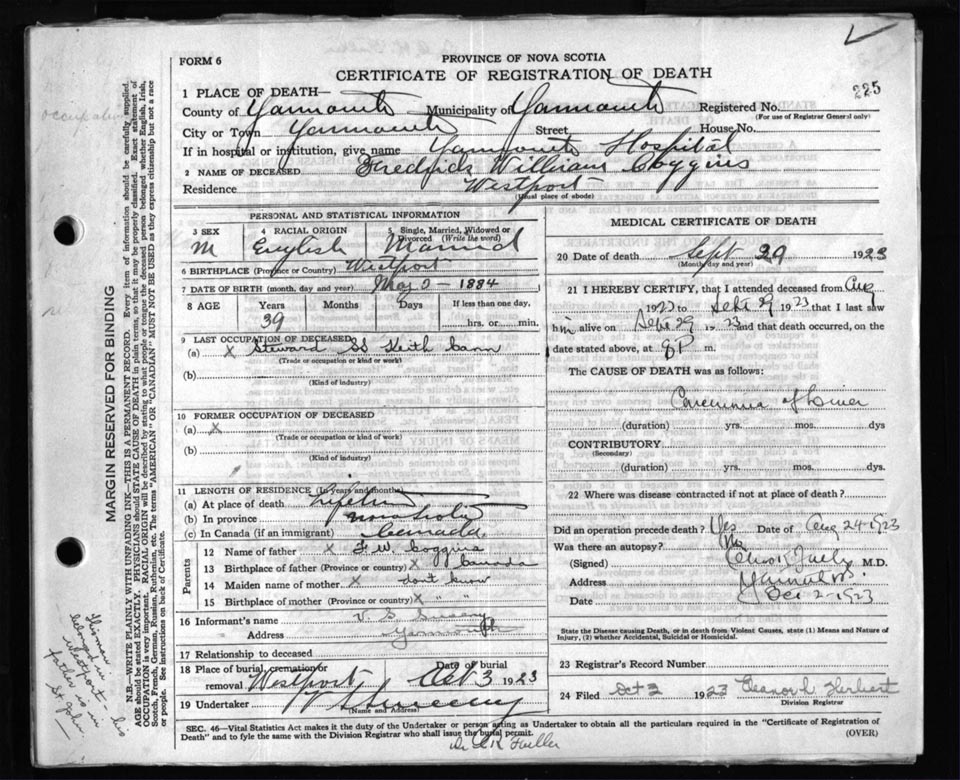 225
FORM 6
PROVINCE OF NOVA SCOTIA
CERTIFICATE OF REGISTRATION OF DEATH
1 PLACE OF DEATH—
County of Yarmouth Municipality of Yarmouth Registered No.
(For use of Registrar General only)
City or Town Yarmouth Street House No.
If in hospital or institution, give name Yarmouth Hospital
2 NAME OF DECEASED Fredfick William Coggins
Residence Westport
(Usual place of abode)
PERSONAL AND STATISTICAL INFORMATION
3 SEX M
4 RACIAL ORIGIN English
5 Single, Married, Widowed or Divorced (Write the word) Married
6 BIRTHPLACE (Province or Country) Westport
7 DATE OF BIRTH (month, day and year) May 1884
8 AGE Years 39 Months Days If less than one day, hrs. or min.
9 LAST OCCUPATION OF DECEASED
(a) X Steward SS Keith Cann
(Trade or occupation or kind of work)
(b)
(Kind of industry)
10 FORMER OCCUPATION OF DECEASED
(a) X
(Trade or occupation or kind of work)
(b)
(Kind of industry)
11 LENGTH OF RESIDENCE (In years and months)
(a) At place of death Lifetime
(b) In province
(c) In Canada (if an immigrant) Canada
Parents
12 Name of father X W. Coggins
13 Birthplace of father (Province or country) X Canada
14 Maiden name of mother X dont know
15 Birthplace of mother (Province or country) X " "
16 Informant's name V. S. Sweeny
Address Yarmouth
17 Relationship to deceased
18 Place of burial, cremation or removal Westport, Date of burial Oct 3 1923
19 Undertaker V S Sweeny
(Name and Address)
MEDICAL CERTIFICATE OF DEATH
20 Date of death Sept 29 1923
(Month, day and year)
21 I HEREBY CERTIFY, that I attended deceased from Aug
1923 to Sept 29 1923 that I last saw
him alive on Sept 29 1923 and that death occurred, on the
date stated above, at 8 P m.
The CAUSE OF DEATH was as follows:
Carcinoma of Liver
(duration) yrs. mos. dys
CONTRIBUTORY
(Secondary)
(duration) yrs. mos. dys.
22 Where was disease contracted if not at place of death?
Did an operation precede death? Yes Date of Aug 24 1923
Was there an autopsy? No
(Signed) M.D.
Address Yarmouth
Date Oct 2 1923
State the Disease causing Death, or in death from Violent Causes, state (1) Means and Nature of Injury, (2) whether Accidental, Suicidal or Homicidal.
23 Registrar's Record Number
24 Filed Oct 2 1923 Eleanor L. Herbert
Division Registrar
SEC. 46—Vital Statistics Act makes it the duty of the Undertaker or person acting as Undertaker to obtain all the particulars required in the "Certificate of Registration of
Death" and to fyle the same with the Division Registrar who shall issue the burial permit. (OVER)
Dr Fuller
MARGIN RESERVED FOR BINDING
N.B.—WRITE PLAINLY WITH UNFADING INK—THIS IS A PERMANENT RECORD. Every item of information should be carefully supplied.
AGE should be stated EXACTLY. PHYSICIANS should STATE CAUSE OF DEATH in plain terms, so that it may be properly classified. Exact statement of
OCCUPATION is very important. RACIAL ORIGIN will be described by stating to what people or tongue the deceased person belonged whether English, Irish,
Scotch, French, German, Russian, Ruthenian, etc. The terms "AMERICAN" OR "CANADIAN" MUST NOT BE USED as they express citizenship but not a race
or people. See instructions on back of Certificate.
occupation
Westport
his father is in St. John